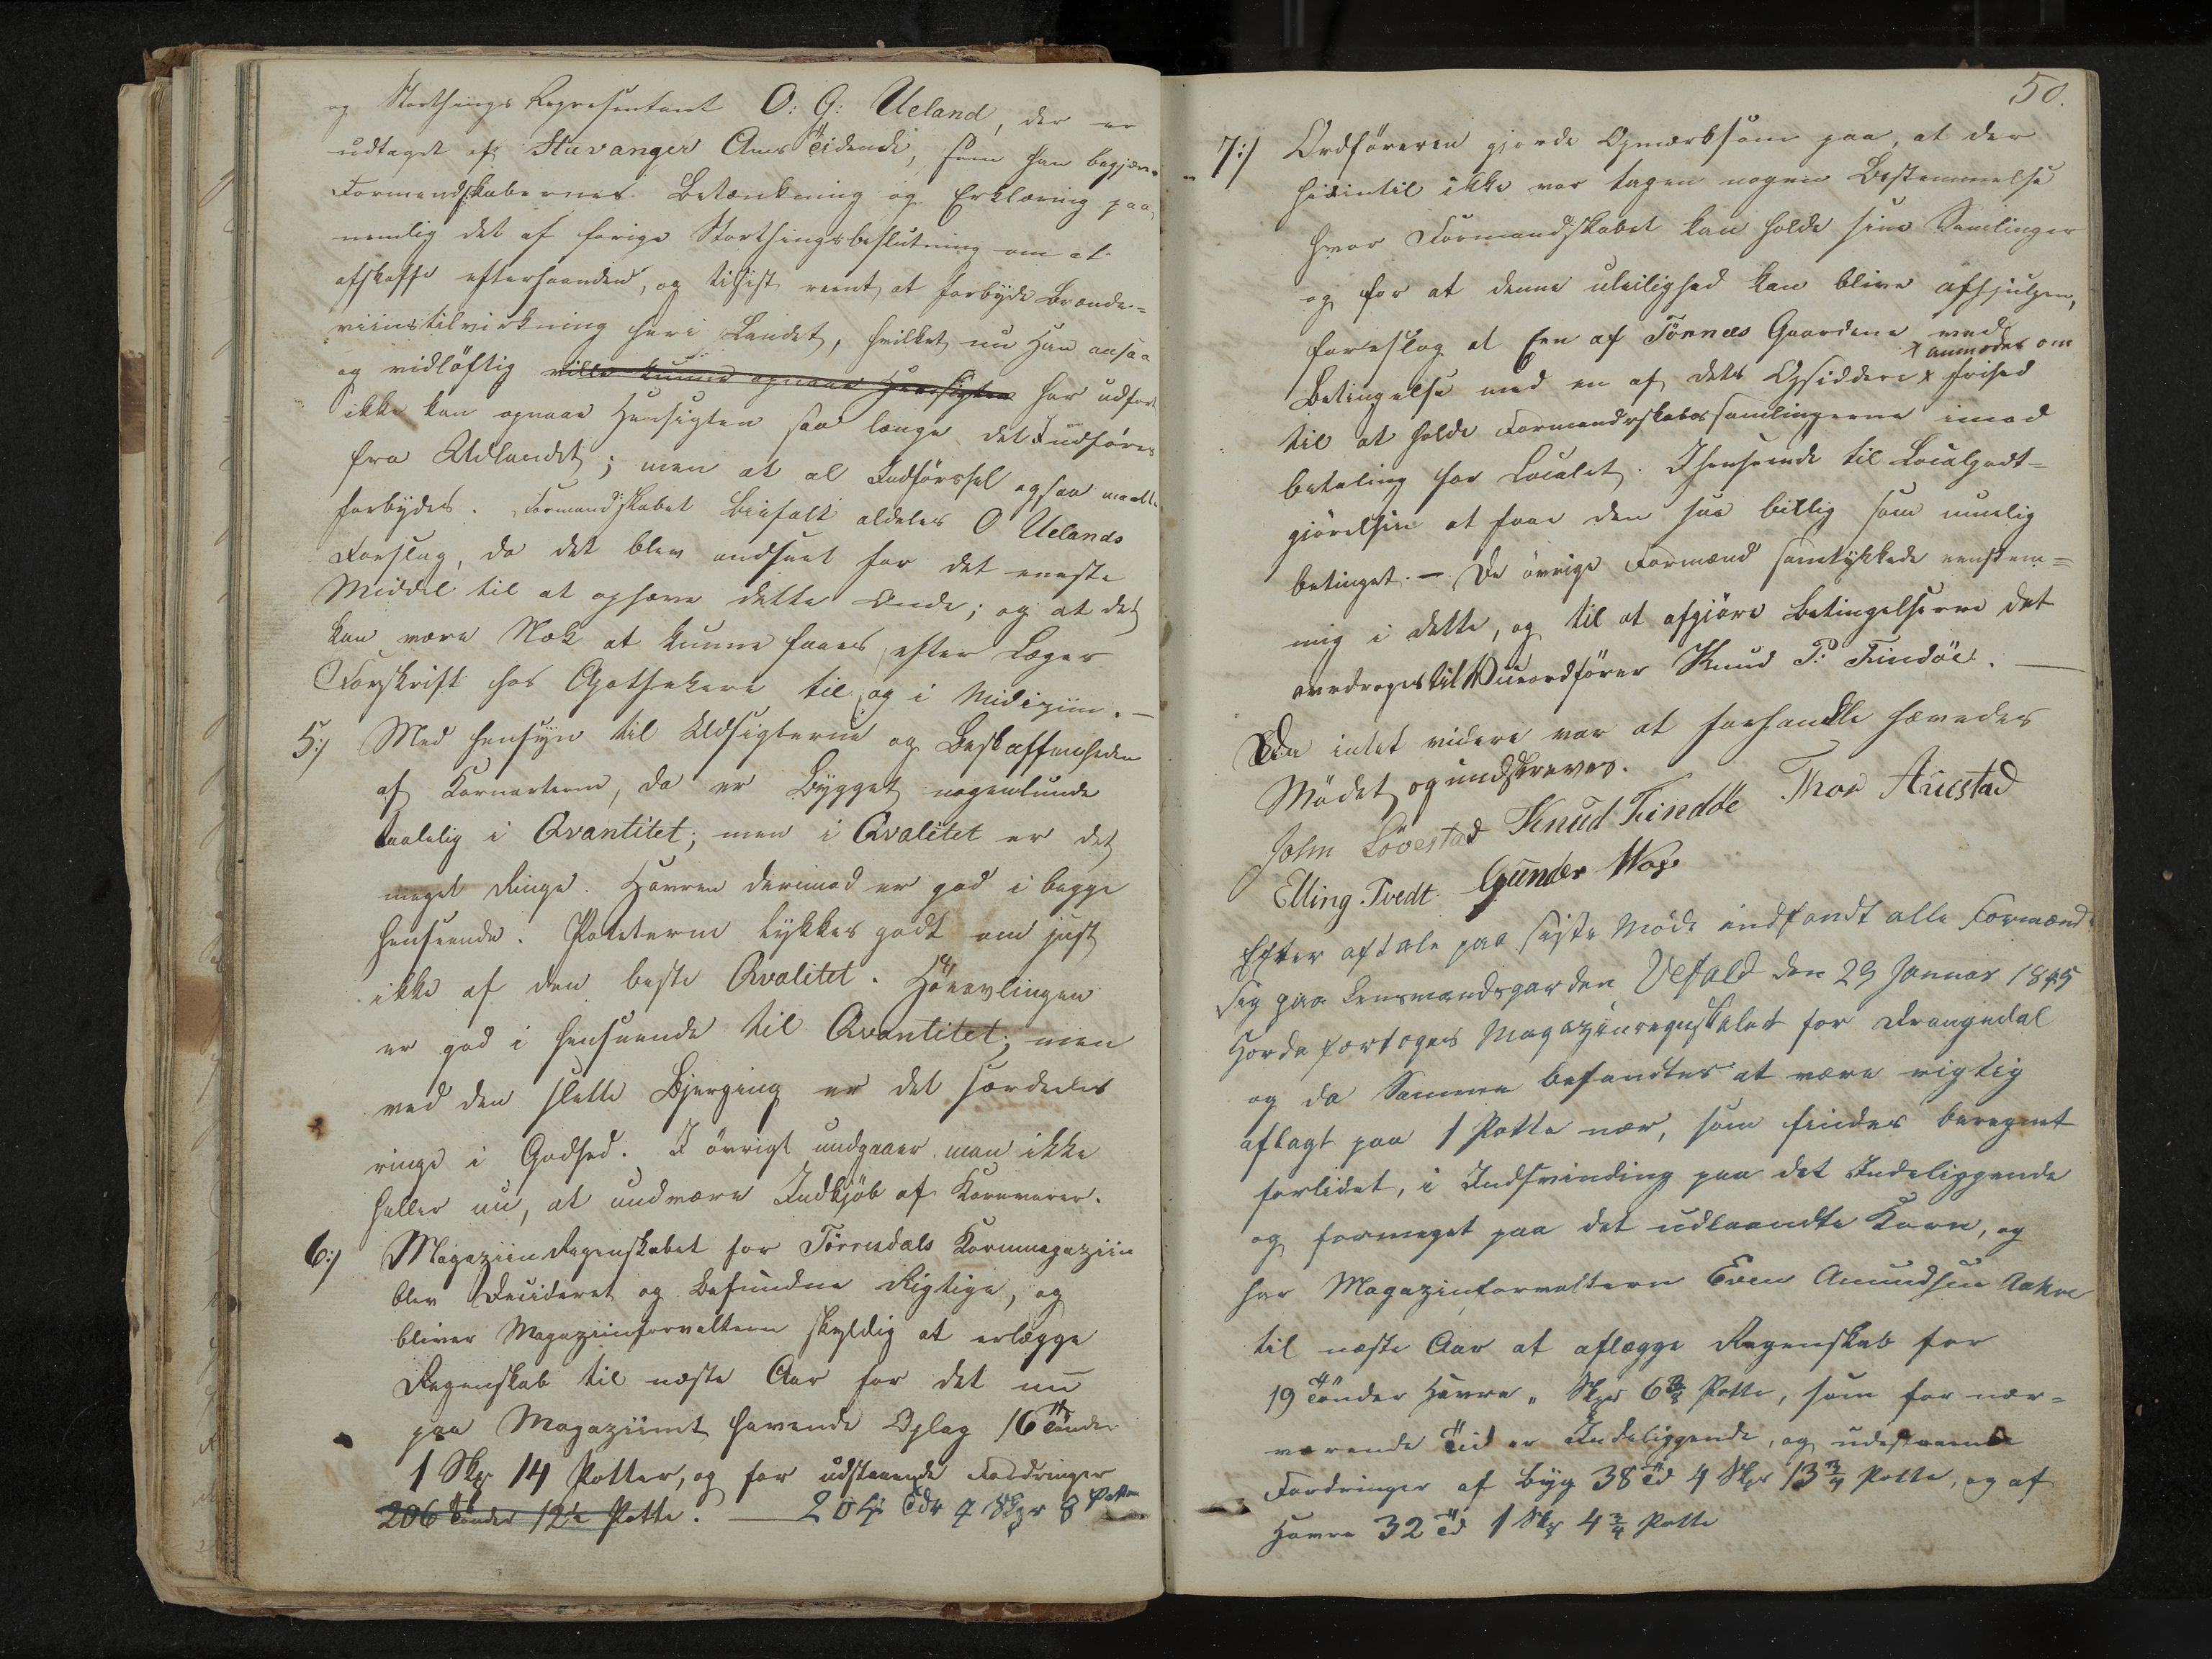 og Storthings Repræsentant O: G: Ueland, der er
udtaget af Stavanger Amts Tidende, som han begjær
Formendskabernes Betænkning og Erklæring paa,
nemlig det af forige Storthingsbeslutning om at
afskaffe efterhaanden, og tilsist reent at forbyde Brænde=
viinstilvirkning heri Landet, hvilket nu Han ansaa
og vidløftig ville kunne opnaae Hensigten har udført
ikke kan opnaae Hensigten saa længe det Indføres
fra Udlandet; men at al Indførssel ogsaa maatte
forbydes. Formandskabet Biefalt aldeles O Uelands
Forslag, da det blev andseet for det eneste
Middel til at ophæve dette Onde; og at det
kan være Nok at kunne faaes efter Læges
Forskrift hos Apothekere til og i Midiziin. —
5:/ Med Hensyn til Udsigterne og Beskaffenheden
af Kornarterne, da er Bygget nogenlunde
taalelig i Qvantitet; men i Qvalitet er det
meget Ringe. Havren derimod er god i begge
Henseende. Poteterne lykkes godt om just
ikke af den beste Qvalitet. Høeavlingen
er god i Henseende til Qvantitet, men
ved den slette Bjerging er det særdeles
ringe i Godhed. I øvrigt undgaaer man ikke
heller nu, at undvære Indkjøb af Kornvarer.
6:/ Magaziin Regenskabet for Tørresdals Kornmagaziin
blev Decideret og Befundne Rigtige, og
bliver Magaziinforvalteren skyldig at erlægge
Regenskab til næste Aar for det nu
paa Magaziinet havende Oplag 16 Tønder
1 Skp 14 Potter, og for udstaaende Fordringer
206 Tønder 12 Potte. — 204 Tdr 4 Skpr 8 Potter
50.
7:/ Ordføreren gjorde Opmærksom paa, at der
hidintil ikke var tagen nogen Bestemmelse
hvor Formandskabet kan holde sine Samlinger
og for at denne uleilighed kan blive afhjulpen,
foreslog at Een af Tønnes Gaardene med
Betingelse med en af dets Opsiddere x frihed
x anmodes om
til at holde Formandsskabssamlingerne imod
betaling for Localet. Ihenseende til Localgodt=
gjørelsen at faae den saa billig som muelig
betinget. — De øvrige Formænd samtykkede eenstem=
mig i dette, og til at afgjøre Betingelserne det
overdroges til Viceordfører Knud P: Findøe. —
Da intet videre var at forhandle hævedes
Mødet og undskreves.
John Lövestad Knud Findöe Thor Aucstad
Elling Tvedt Gunder
Efter aftale paa siste Møde indfandt alle Formænd
sig paa Lensmandsgarden Vefald den 29 Januar 1845
Hørda foretoges Magazinregnskabet for Drangedal
og da Samme befandtes at være rigtig
aflagt paa 1 Potte nær, som findes beregnet
forlidet, i Indsvinding paa det Indeliggende
og formeget paa det udlaandte Korn, og
har Magazinforvalteren Even Amundsen
til næste Aar at aflægge Regenskab for
19 Tønder Havre " Skpr 6 Potte, som for nær=
værende Tid er Indeliggende, og udestaaende
Fordringer af Byg 38 Td 4 Skpr 13 3/4 Potte, og af
Havre 32 Td 1 Skp 4 3/4 Potte